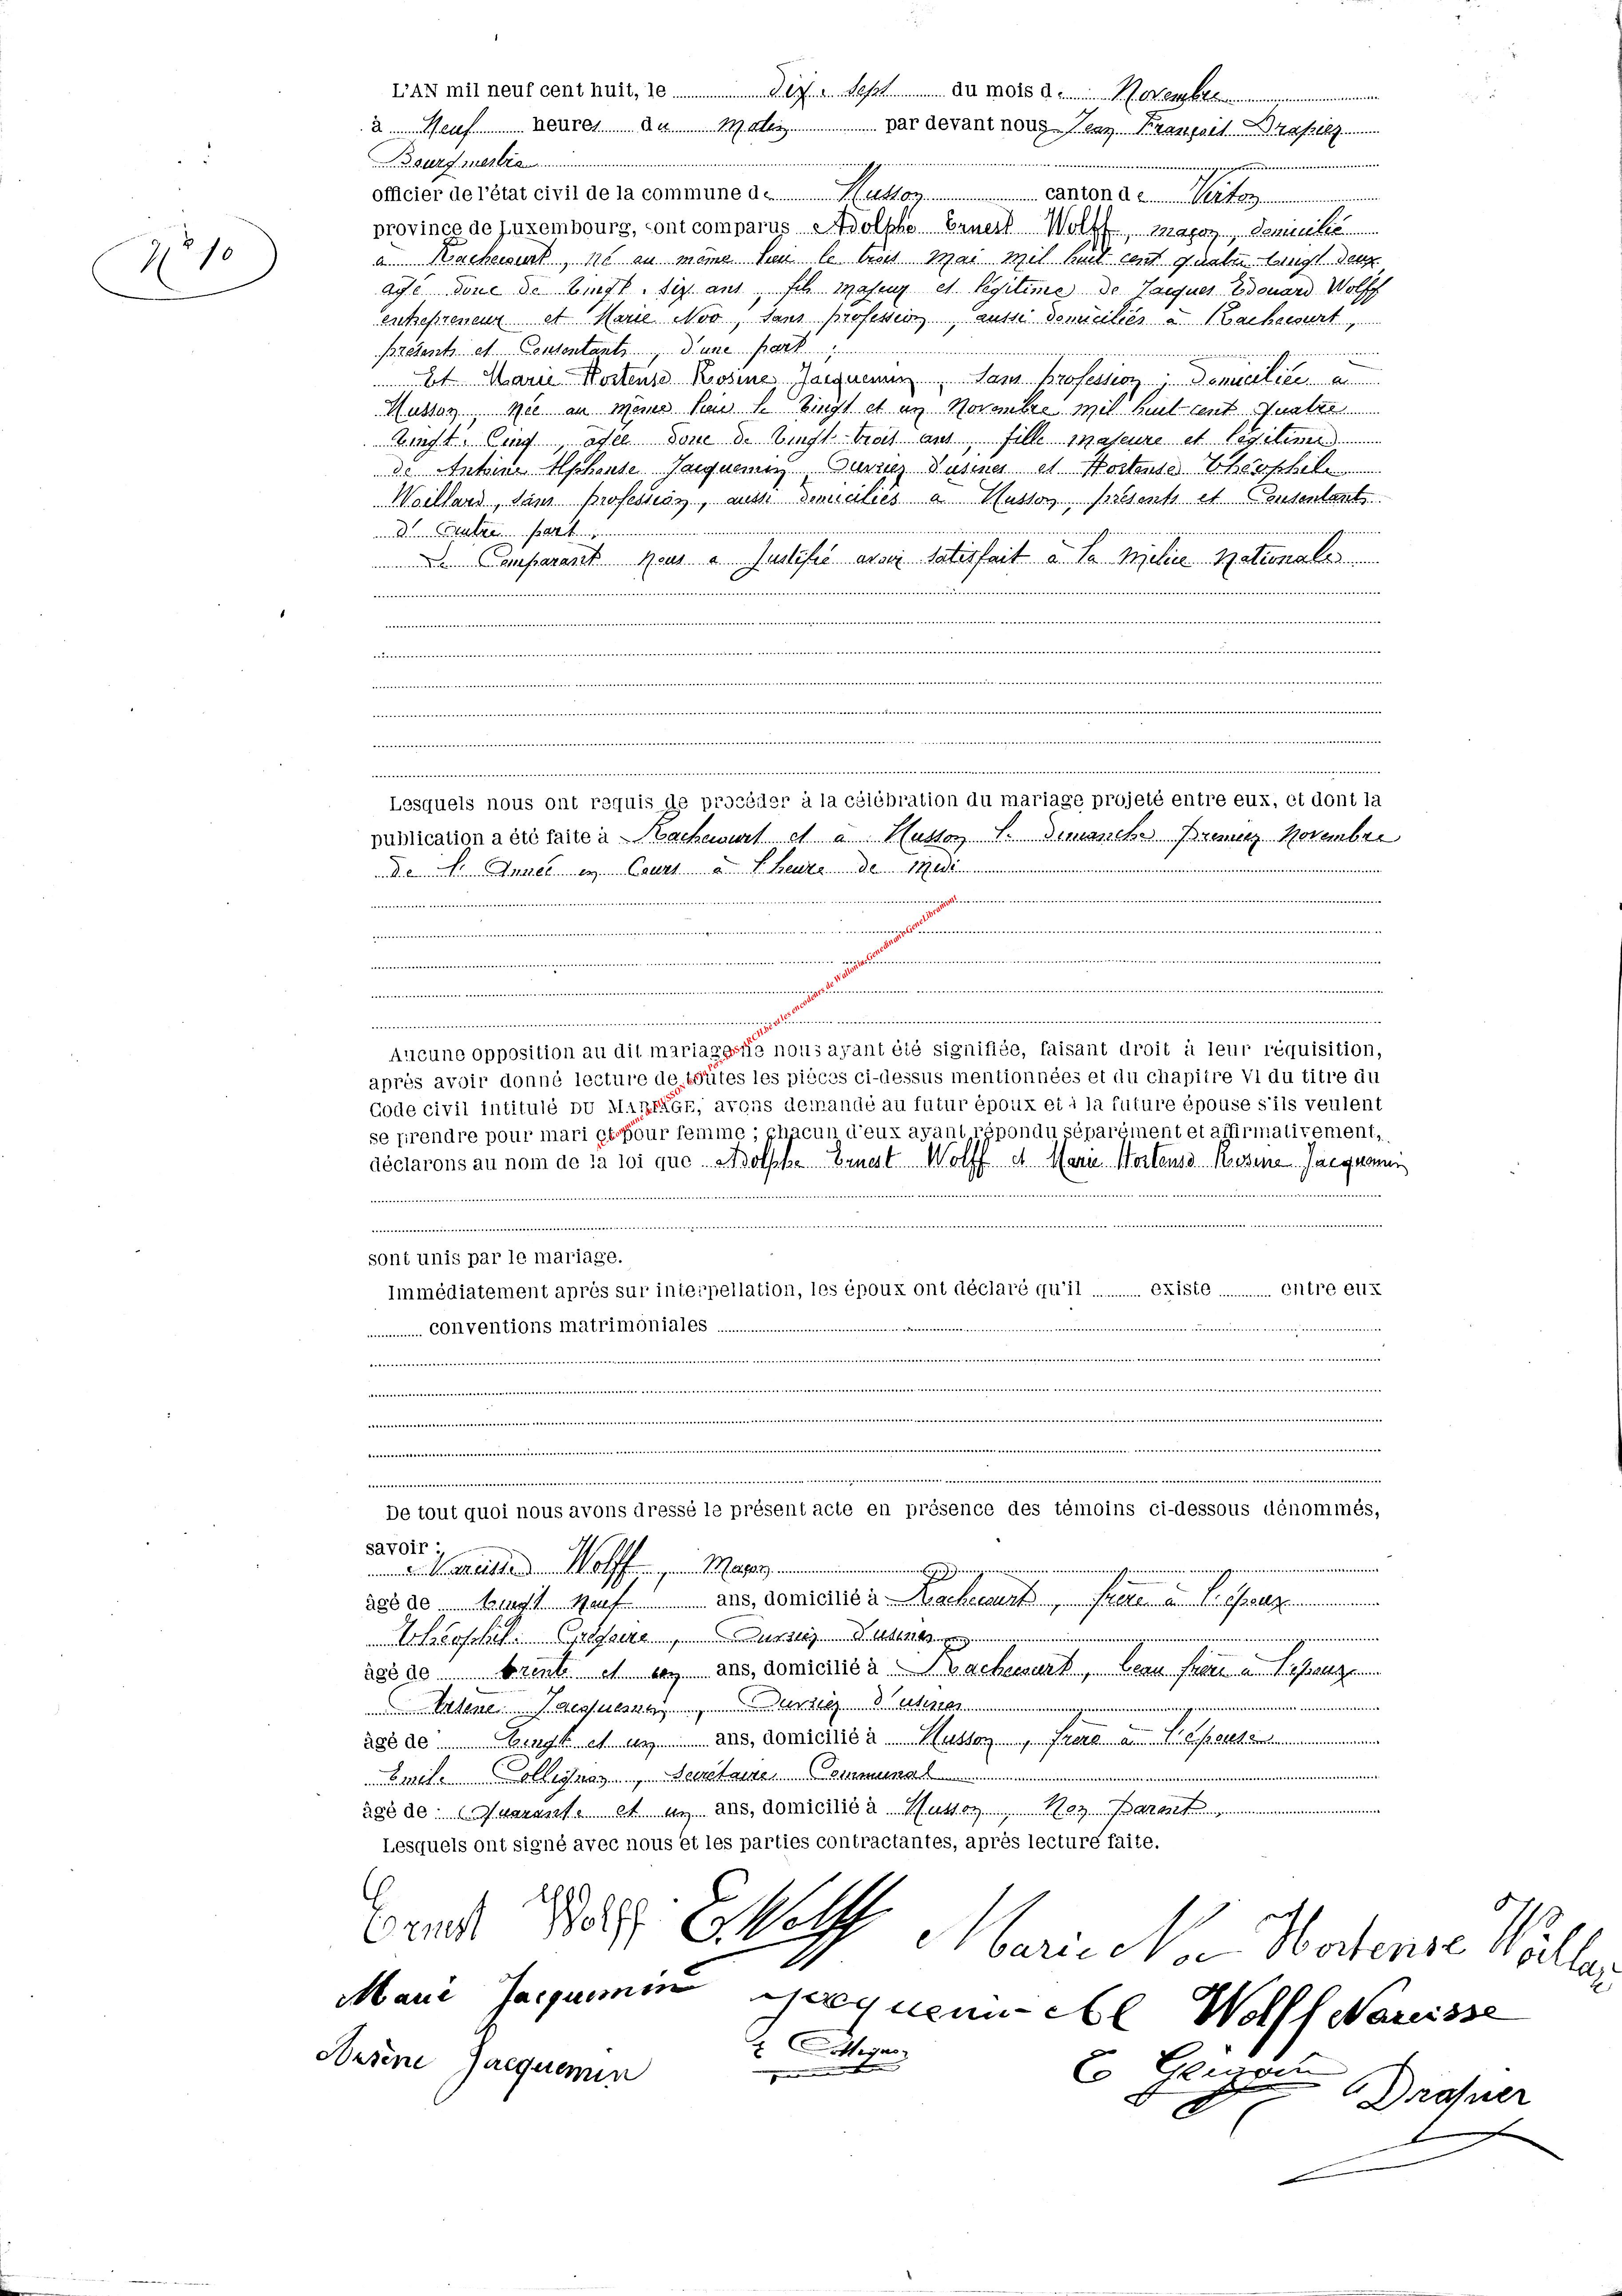 N° 10
L'AN mil neuf cent huit, le dix. sept du mois de Novembre
à Neuf heures du Matin par devant nous Jean François Drapier
Bourgmestre
officier de l'état civil de la commune de Musson canton de Virton
province de Luxembourg, sont comparus Adolphe Ernest Wolff, maçon, domicilié
à Rachecourt, né au même lieu le trois mai mil huit cent quatre vingt deux
agé donc de vingt. six ans, fils majeur et légitime de Jacques Edouard Wolff
entrepreneur et Marie Noo, sans profession, aussi domiciliés à Rachecourt,
présents et Consentants, d'une part;
Et Marie Hortense Rosine Jacquemin, Sans profession; domiciliée à
Musson, née au même lieu le vingt et un Novembre mil huit cent quatre
vingt. Cinq, agée donc de vingt-trois ans, fille majeure et légitime
de Antoine Alphonse Jacquemin Ouvrier d'usines et Hortense Théophile
Woillard, sans profession, aussi domiciliés à Musson, présents et Consentants
d'autre part.
Le Comparant nous a justifié avoir satisfait à la milice Nationale
Lesquels nous ont requis de procéder à la célébration du mariage projeté entre eux, et dont la
publication a été faite à Rachecourt et à Musson le dimanche premier Novembre
de l'Année en Cours à l'heure de Midi
Aucune opposition au dit mariage ne nous ayant été signifiée, faisant droit à leur réquisition,
après avoir donné lecture de toutes les pièces ci-dessus mentionnées et du chapitre VI du titre du
Code civil intitulé DU MARIAGE, avons demandé au futur époux et à la future épouse s'ils veulent
se prendre pour mari et pour femme; chacun d'eux ayant répondu séparément et affirmativement,
déclarons au nom de la loi que Adolphe Ernest Wolff et Marie Hortense Rosine Jacquemin
sont unis par le mariage.
Immédiatement après sur interpellation, les époux ont déclaré qu'il existe entre eux
conventions matrimoniales
De tout quoi nous avons dressé le présent acte en présence des témoins ci-dessous dénommés,
savoir:
Narcisse Wolff, Maçon
âgé de vingt neuf ans, domicilié à Rachecourt, frère à l'époux
Théophile Grégoire, Ouvrier d'usines
âgé de trente et un ans, domicilié à Rachecourt, beau frère à l'époux
Arsène Jacquemin, Ouvrier d'usines
âgé de Vingt et un ans, domicilié à Musson, frère à l'épouse
Emile Collignon, Secrétaire Communal
âgé de Quarante et un ans, domicilié à Musson, Non Parent
Lesquels ont signé avec nous et les parties contractantes, après lecture faite.
Ernest Wolff E. Wolff Marie Noo Hortense Woillar
Marie Jacquemin Jacquemin Al Wolff Narcisse
Arsène Jacquemin E Collignon
Drapier